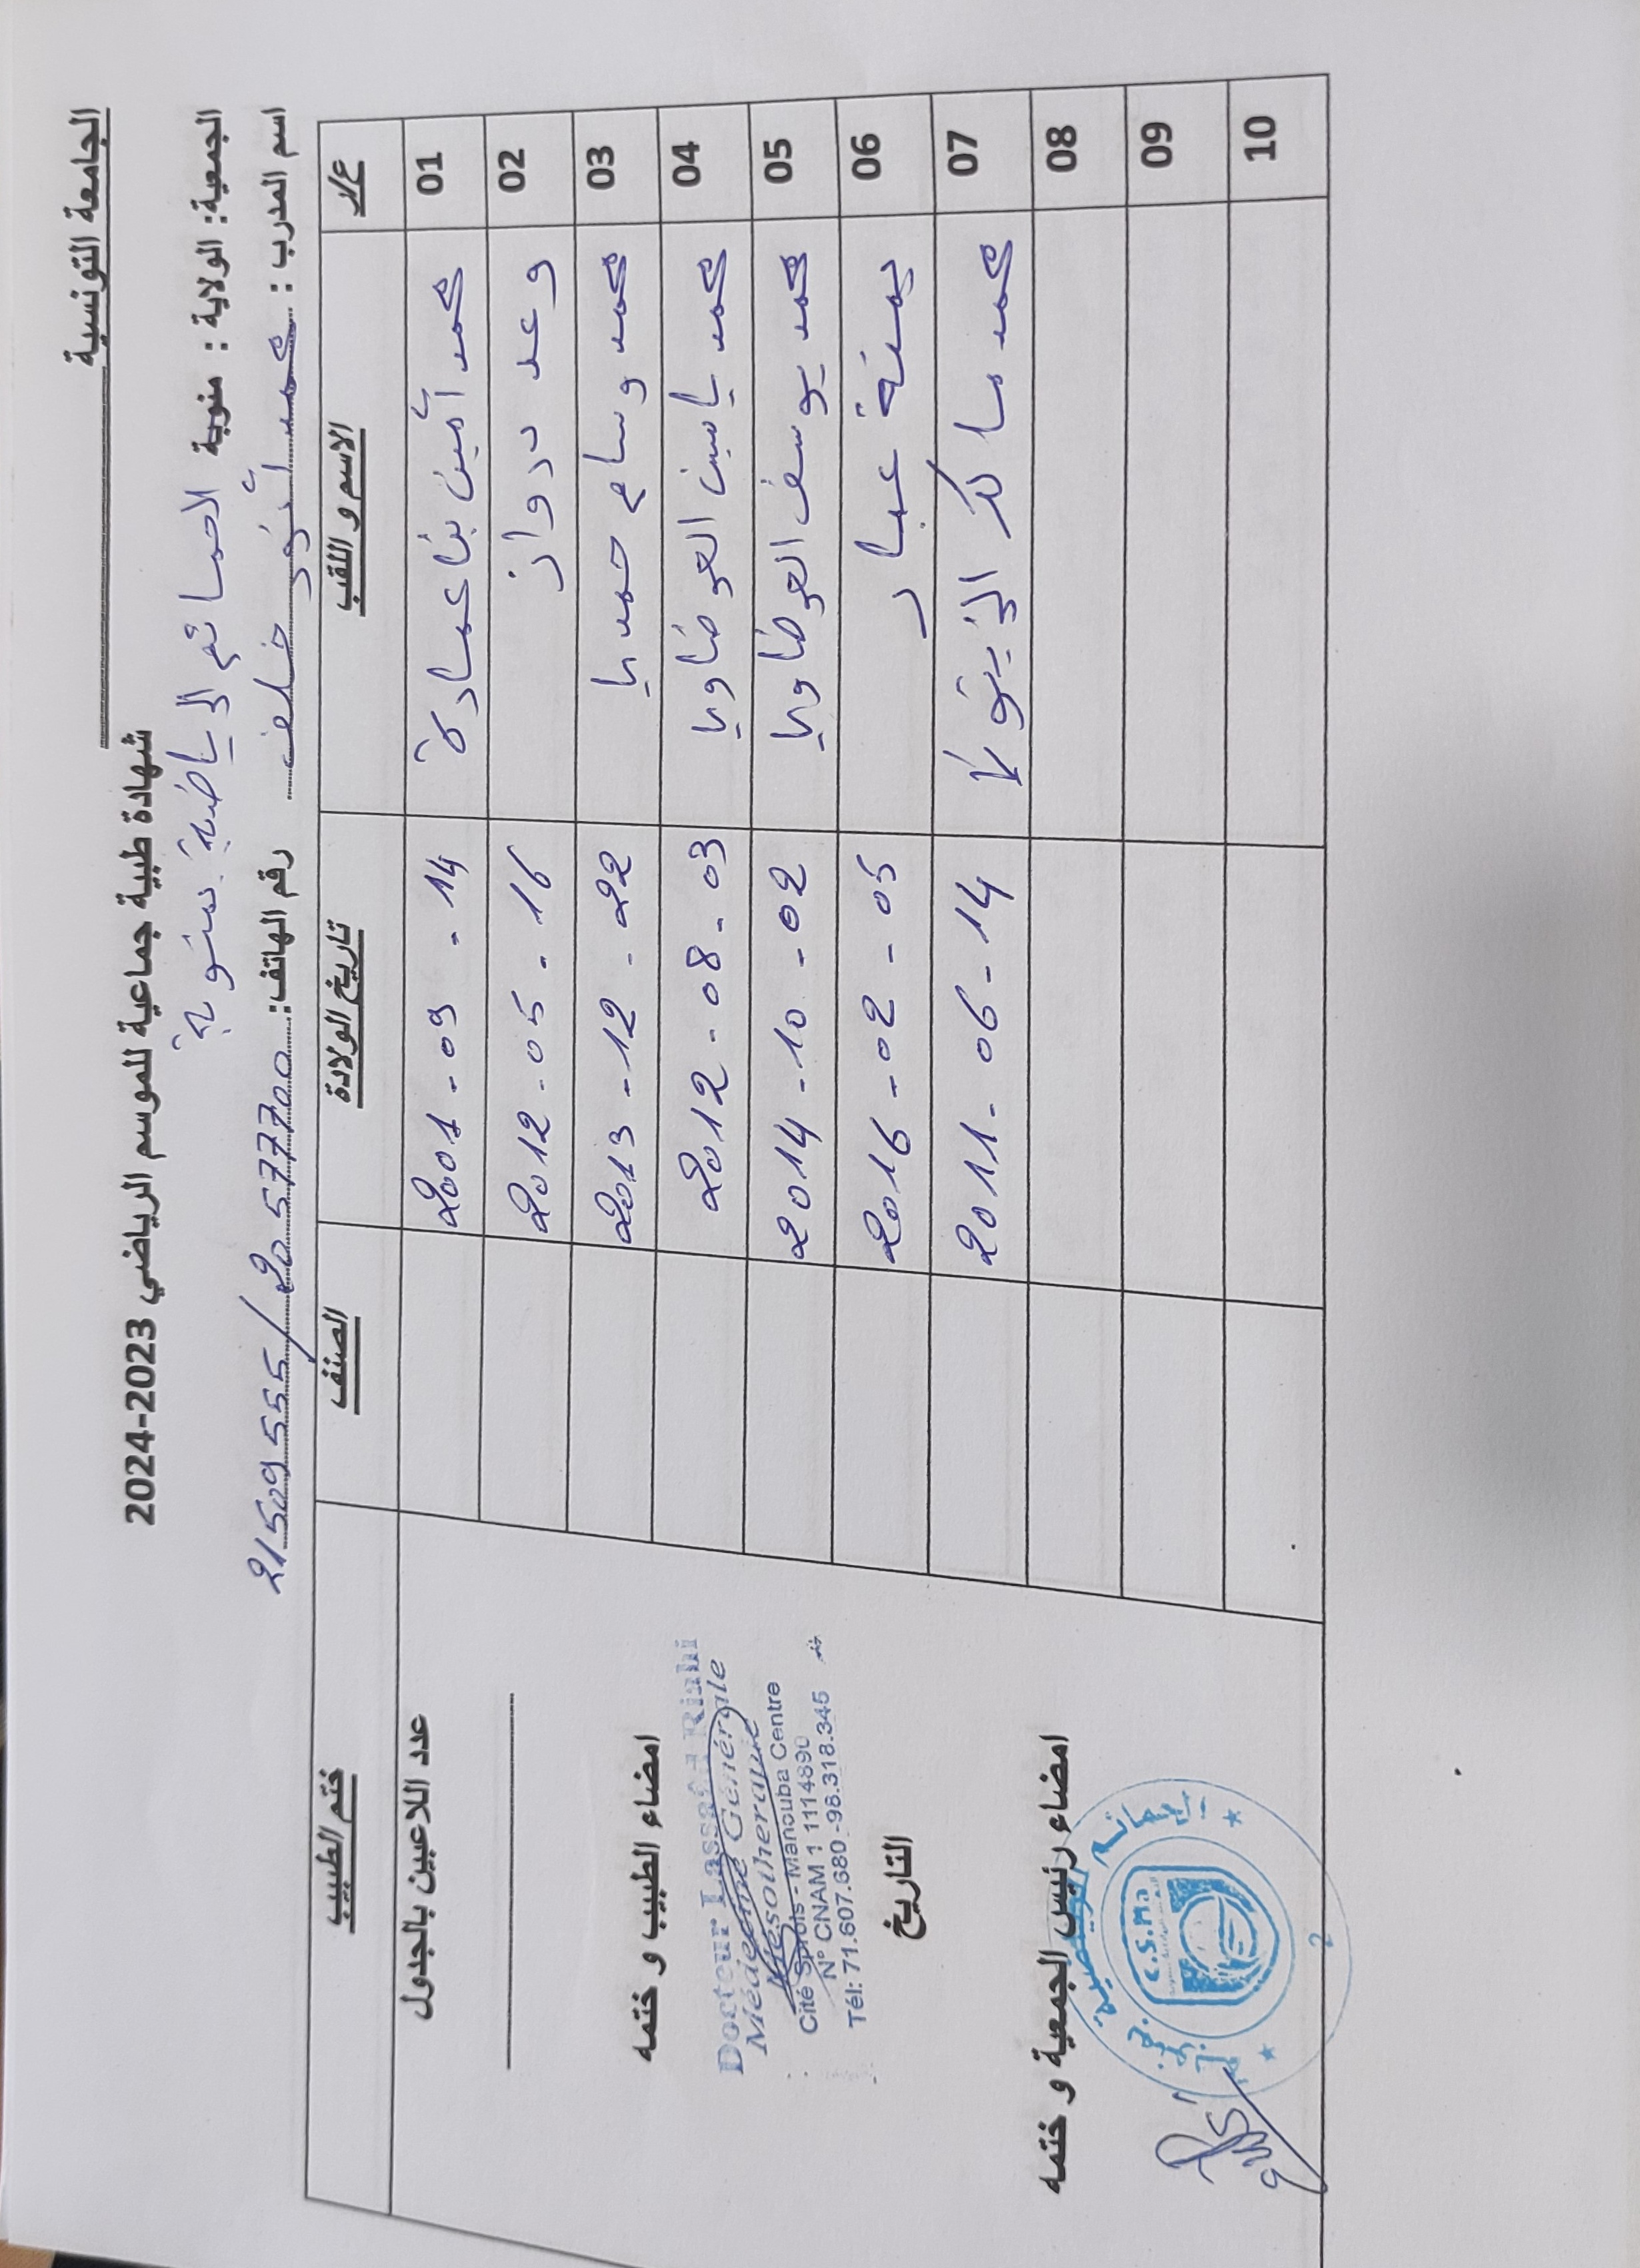 الجامعة التونسية
شهادة طبية جماعية للموسم الرياضي 2023-2024
الجمعية: الولاية : منوبة الحمائم الرياضية بمنوبة
اسم المدرب : محمد أنور خلف رقم الهاتف: 21509555/20577700
ع/ر الاسم و اللقب تاريخ الولادة الصنف ختم الطبيب
01 محمد أمين بناعمارة 2001-09-14
02 وعد دواز 2012-05-16
03 محمد وسام حمديا 2013-12-22
04 محمد ياسين العوضاويا 2012-08-03
05 محمد يوسف العوضاويا 2014-10-02
06 يمنة عبار 2016-02-05
07 محمد مالك الزيتوني 2011-06-14
08
09
10
عدد اللاعبين بالجدول
امضاء الطبيب و ختمه
Docteur Lassaad Riahi
Médecine Générale
Mésothérapie
Cité Sprols - Manouba Centre
N° CNAM 1 1114890
Tél: 71.607.680 -98.318.345
التاريخ
امضاء رئيس الجمعية و ختمه
C.S.M.a